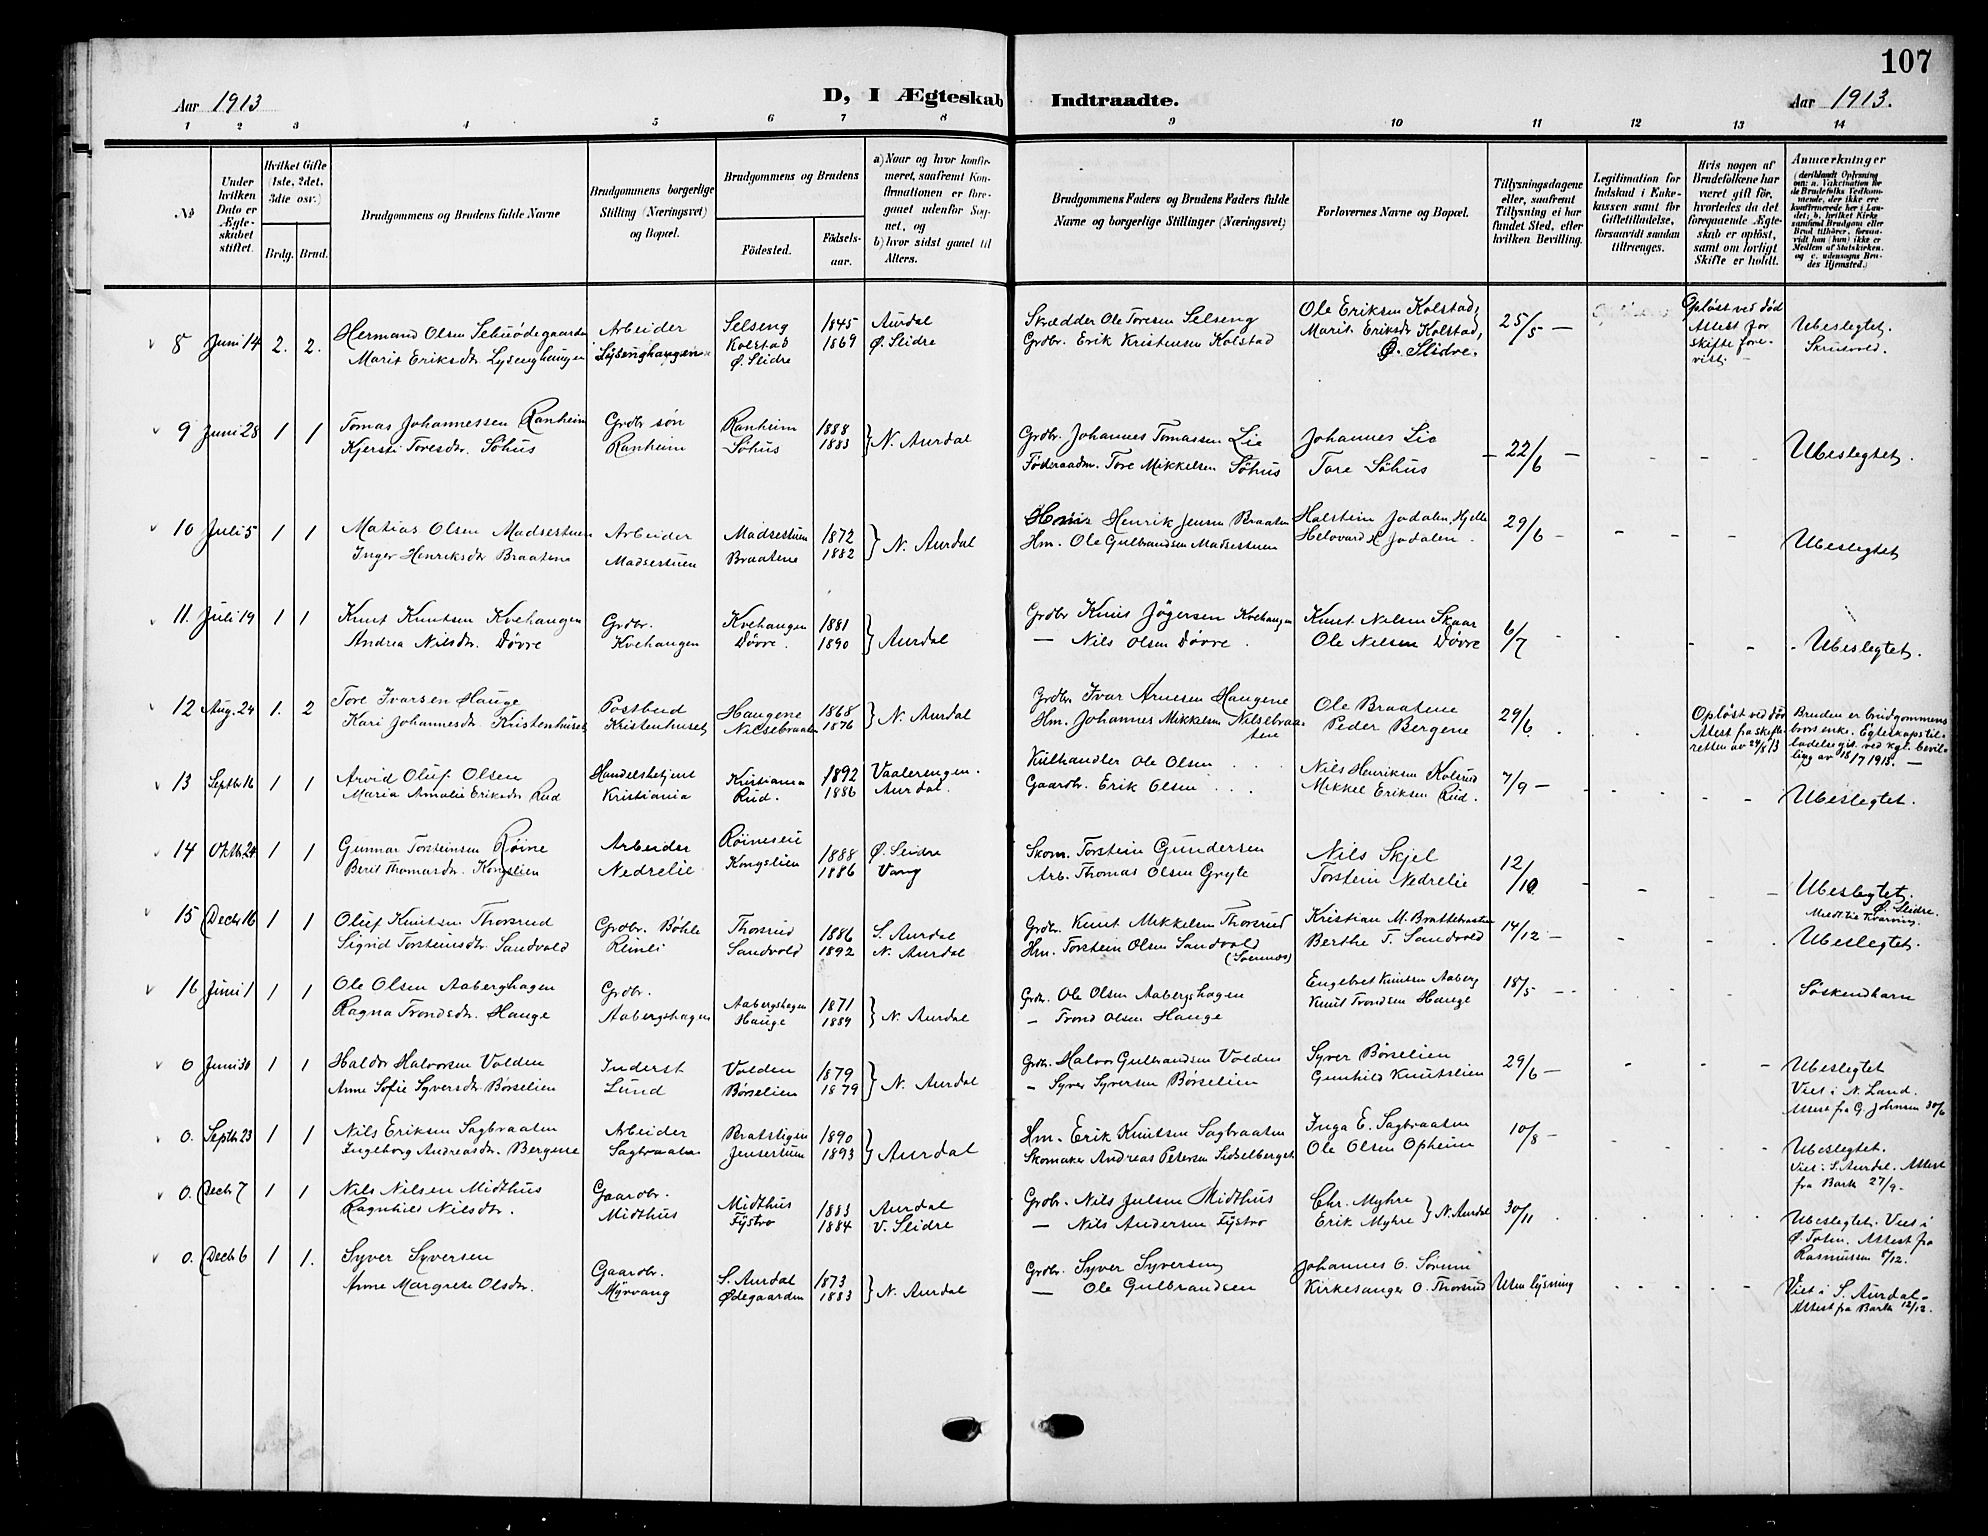 107
Aar 1913
D, I Ægteskab Indtraadte.
Aar 1913.
1 2 3 4 5 6 7 8 9 10 11 12 13 14
No
Under hvilken Dato er Ægteskabet stiftet.
Hvilket Gifte (1ste, 2det, 3die osv.)
Brdg. Brud.
Brudgommens og Brudens fulde Navne
Brudgommens borgerlige Stilling (Næringsvei) og Bopæl.
Brudgommens og Brudens
Fødested.
Fødselsaar.
a) Naar og hvor konfirmeret, saafremt Konfirmationen er foregaaet udenfor Sognet, og
b) hvor sidst gaaet til Alters.
Brudgommens Faders og Brudens Faders fulde Navne og borgerlige Stillinger (Næringsvei)
Forlovernes Navne og Bopæl.
Tillysningsdagene eller, saafremt Tillysning ei har fundet Sted, efter hvilken Bevilling.
Legitimation for Indskud i Enkekassen samt for Giftetilladelse, forsaavidt saadan tiltrænges.
Hvis nogen af Brudefolkene har været gift før, hvorledes da det foregaaende Ægteskab er opløst, samt om lovligt Skifte er holdt.
Anmærkninger
8 Juni 14 2. 2. Hermand Olsen Arbeider Selseng 1845 Aurdal Skrædder Ole Toresen Selseng Ole Eriksen Kolstad, 25/5 – Opløst ved død
Marit Eriksdr. Lysenghaugen Lysenghaugen Kolstad 1869 Ø. Slidre Grdbr. Erik Kristensen Kolstad Marit Eriksdr. Kolstad, Attest for skifte forevist. – Ubeslegtet.
Ø. Slidre Ø. Slidre. Skrutvold.
9 Juni 28 1 1 Tomas Johannessen Ranheim Grdbr søn Ranheim 1888 } N. Aurdal Grdbr. Johannes Tomassen Lie Johannes Lie – 22/6 – Ubeslegtet.
Kjersti Toresdr. Søhus Ranheim Søhus 1883 Føderaadm. Tore Mikkelsen Søhus Tore Søhus
10 Juli 5 1 1 Matias Olsen Madsestuen Arbeider Madsestuen 1872 } N. Aurdal Henrik Jensen Braaten Halstein Jodalen, Hjelle 29/6 – Ubeslegtet
Inger Henriksdr Braatene Madsestuen Braatene 1882 Hm. Ole Gulbrandsen Madsestuen Jodalen.
11. Juli 19 1 1 Knut Knutsen Kvehaugen Grdbr. Kvehaugen 1881 } Aurdal Grdbr Knut Kvehaugen Knut Nilsen Skaar 6/7 – Ubeslegtet.
Andrea Nilsdr. Døvre Kvehaugen Døvre. 1890 — Nils Olsen Døvre. Ole Nilsen Døvre
12 Aug. 24 1. 2 Tore Ivarsen Hauge Postbud Haugene 1868 } N. Aurdal Grdbr Ivar Arnesen Haugene Ole Braatene 29/6 Opløst ved død Bruden er brudgommens
Kari Johannesdr. Kristenhuset Kristenhuset Nilsebraaten 1876 Hm. Johannes Mikkelsen Nilsebraatene Peder Bergene Attest fra skifteretten av 24/8 13 brors enke. Egteskapstilladelse git ved kgl. bevilling av 18/7 1913. —
13 Septbr 16 1 1 Arvid Oluf Olsen Handelsbetjent Kristiania 1892 Vaalerengen. Kulhandler Ole Olsen Nils Henriksen Kolsrud 7/9 – Ubeslegtet.
Maria Amalie Eriksdr Rud Kristiania Rud. 1886 Aurdal. Gaardbr. Erik Olsen Mikkel Eriksen Rud.
14 Oktbr. 24 1 1 Gunnar Torsteinsen Røine Arbeider Røineseie 1888 Ø. Slidre Skom. Torstein Gundersen Nils Skjel 12/10 Ubeslegtet.
Berit Thomasdr. Kongslien Nedrelie Kongslien 1886 Vang Arb. Thomas Olsen Torstein Nedrelie Ø. Slidre.
15 Decbr 16 1 1 Oluf Knutsen Thorsrud Grdbr. Bøhle Thorsrud 1886 S. Aurdal Grdbr. Knut Mikkelsen Thorsrud Kristian M. Brattebraaten 14/12 – Ubeslegtet.
Sigrid Torsteinsdr. Sandvold Reinli Sandvold 1892 N. Aurdal Hm. Torstein Olsen Sandvold Berthe T. Sandvold
16 Juni 1 1 1 Ole Olsen Aaberghagen Grdbr. Aabergshagen 1871 } N. Aurdal Grdbr. Ole Olsen Aabergshagen Engebret Knutsen Aaberg 18/5 – Søskendbarn
Ragna Trondsdr. Hauge Aabergshagen Hauge 1889 – Trond Olsen Hauge Knut Trondsen Hauge
0 Juni 30 1 1 Haldor Halvorsen Volden Inderst Volden 1879 } N. Aurdal Grdbr. Halvor Gulbrandsen Volden Syver Børselien 29/6 – Ubeslegtet
Anne Sofie Syversdr Børselien Lund Børselien 1879 – Syver Syversen Børselien Gunhild Knutslien Viet i N. Land.
Attest fra G. Johnsen 30/6
0. Septbr 23 1 1 Nils Eriksen Sagbraaten Arbeider Bratstigen 1890 } Aurdal Hm. Erik Knutsen Sagbraaten Inga E. Sagbraaten 10/8 – Ubeslegtet.
Ingeborg Andreasdr. Bergene Sagbraaten Jensestuen 1893 Skomaker Andreas Petersen Ole Olsen Opheim Viet i S. Aurdal. Attest
fra Bark 27/9.
0. Decbr 7 1 1 Nils Nilsen Midthus Gaardbr. Midthus 1883 Aurdal Grdbr. Nils Julsen Midthus Chr. Myhre } N. Aurdal 30/11 Ubeslegtet. Viet i
Ragnhild Nilsdr. Midthus Fystro 1884 V. Slidre — Nils Andersen Fystro Erik Myhre Ø. Toten. Attest fra
Rasmussen 8/12.
0. Decbr 6 1 1. Syver Syversen Gaardbr. S. Aurdal 1873 } N. Aurdal Grdbr. Syver Syversen Johannes O. Sørum Uten lysning Viet i S. Aurdal.
Anne Margrete Olsdr. Myrvang Ødegaarden 1883 — Ole Gulbrandsen Kirkesanger O. Thorsrud Attest fra Bark 12/12.